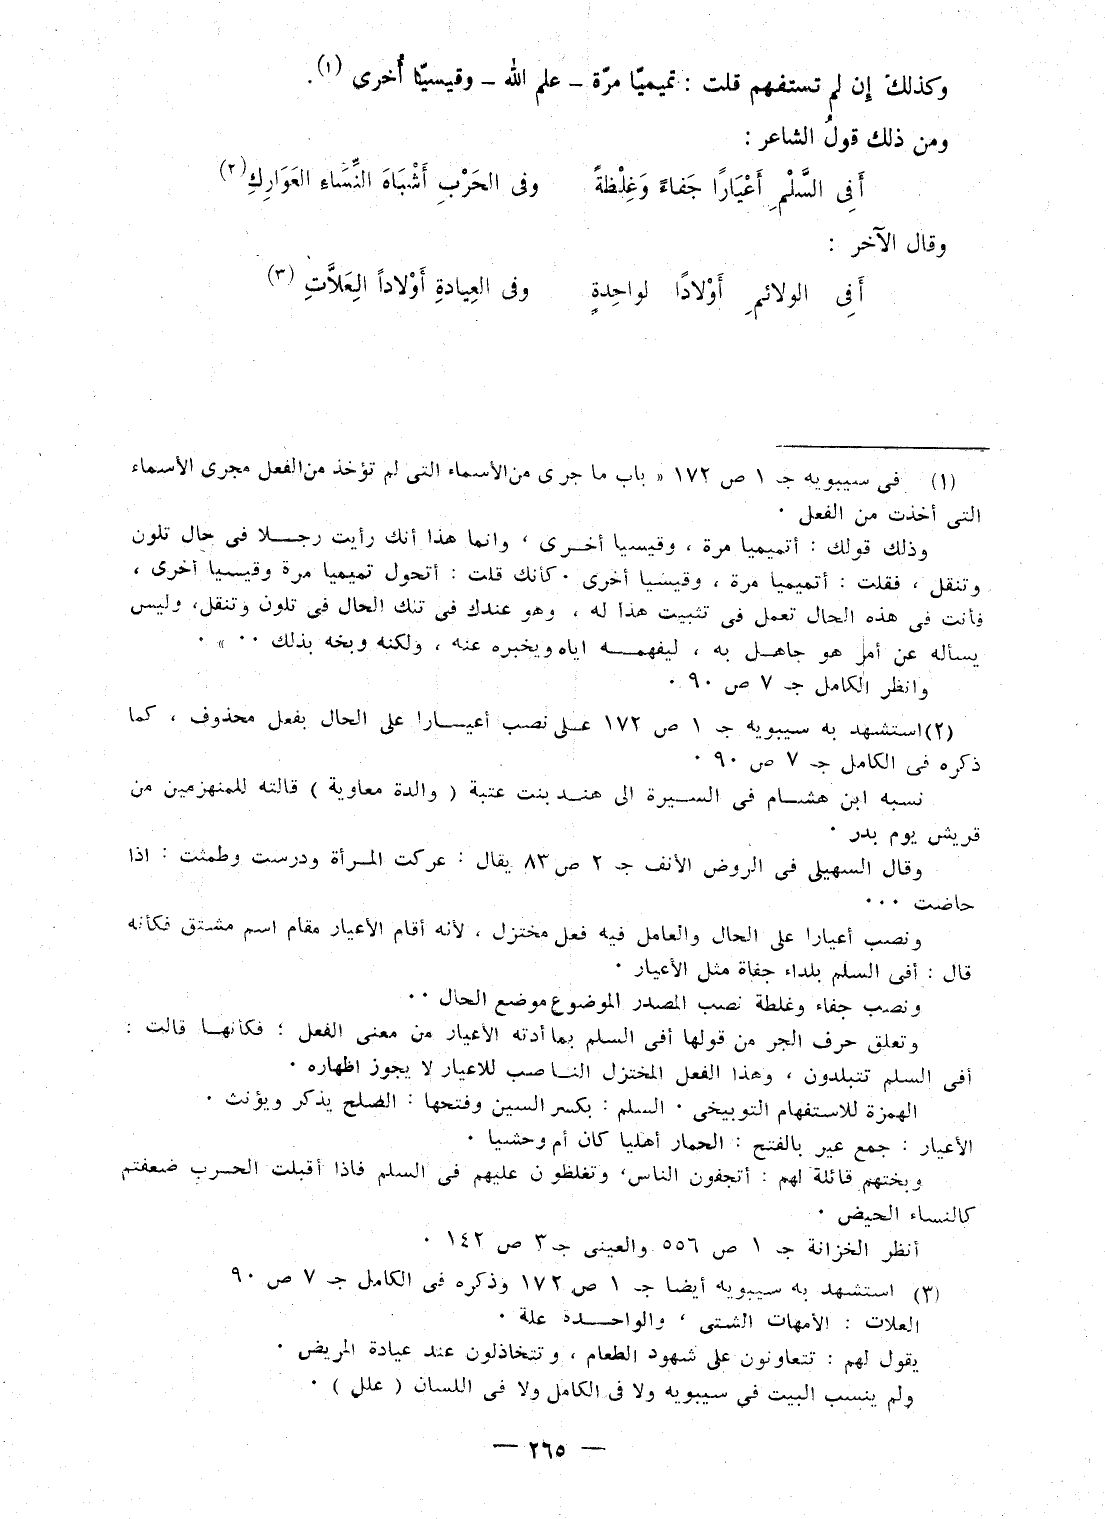 وكذلك إِن لم تستفهم قلت : تميميّا مرّة – علم الله – وقيسيّا أُخرى (١) .
ومن ذلك قولُ الشاعر :
أَفِى السَّلْمِ أَعْيَارًا جَفاءً وَغِلْظةً وفى الحَرْبِ أَشْبَاهَ النِّسَاءِ العَوَارِكِ (٢)
وقال الآخر :
أَفِى الولائمِ أَوْلادًا لواحِدةٍ وفى العِيادةِ أَوْلاداً لِعَلاَّتِ (٣)
(١) فى سيبويه جـ ١ ص ١٧٢ « باب ما جرى من الأسماء التى لم تؤخذ من الفعل مجرى الأسماء
التى أخذت من الفعل .
وذلك قولك : أتميميا مرة ، وقيسيا أخرى ، وانما هذا أنك رأيت رجلا فى حال تلون
وتنقل ، فقلت : أتميميا مرة ، وقيسيا أخرى . كأنك قلت : أتحول تميميا مرة وقيسيا أخرى ،
فأنت فى هذه الحال تعمل فى تثبيت هذا له ، وهو عندك فى تلك الحال فى تلون وتنقل، وليس
يسأله عن أمر هو جاهل به ، ليفهمه اياه ويخبره عنه ، ولكنه وبخه بذلك .. » .
وانظر الكامل جـ ٧ ص ٩٠ .
(٢) استشهد به سيبويه جـ ١ ص ١٧٢ على نصب أعيارا على الحال بفعل محذوف ، كما
ذكره فى الكامل جـ ٧ ص ٩٠ .
نسبه ابن هشام فى السيرة الى هند بنت عتبة ( والدة معاوية ) قالته للمنهزمين من
قريش يوم بدر .
وقال السهيلى فى الروض الأنف جـ ٢ ص ٨٣ يقال : عركت المرأة ودرست وطمثت : اذا
حاضت ...
ونصب أعيارا على الحال والعامل فيه فعل مختزل ، لأنه أقام الأعيار مقام اسم مشتق فكأنه
قال : أفى السلم بلداء جفاة مثل الأعيار .
ونصب جفاء وغلظة نصب المصدر الموضوع موضع الحال ..
وتعلق حرف الجر من قولها أفى السلم بما أدته الأعيار من معنى الفعل ؛ فكأنها قالت :
أفى السلم تتبلدون ، وهذا الفعل المختزل الناصب للاعيار لا يجوز اظهاره .
الهمزة للاستفهام التوبيخى . السلم : بكسر السين وفتحها : الصلح يذكر ويؤنث .
الأعيار : جمع عير بالفتح : الحمار أهليا كان أم وحشيا .
وبختهم قائلة لهم : أتجفون الناس، وتغلظون عليهم فى السلم فاذا أقبلت الحرب ضعفتم
كالنساء الحيض .
أنظر الخزانة جـ ١ ص ٥٥٦ والعينى جـ ٣ ص ١٤٢ .
(٣) استشهد به سيبويه أيضا جـ ١ ص ١٧٢ وذكره فى الكامل جـ ٧ ص ٩٠
العلات : الأمهات الشتى ، والواحدة علة .
يقول لهم : تتعاونون على شهود الطعام ، وتتخاذلون عند عيادة المريض .
ولم ينسب البيت فى سيبويه ولا فى الكامل ولا فى اللسان ( علل ) .
— ٢٦٥ —